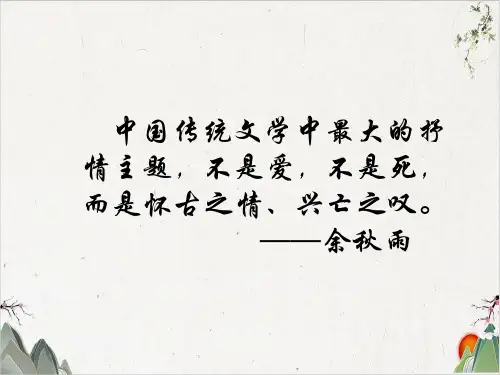 中国传统文学中最大的抒
情主题，不是爱，不是死，
而是怀古之情、兴亡之叹。
——余秋雨